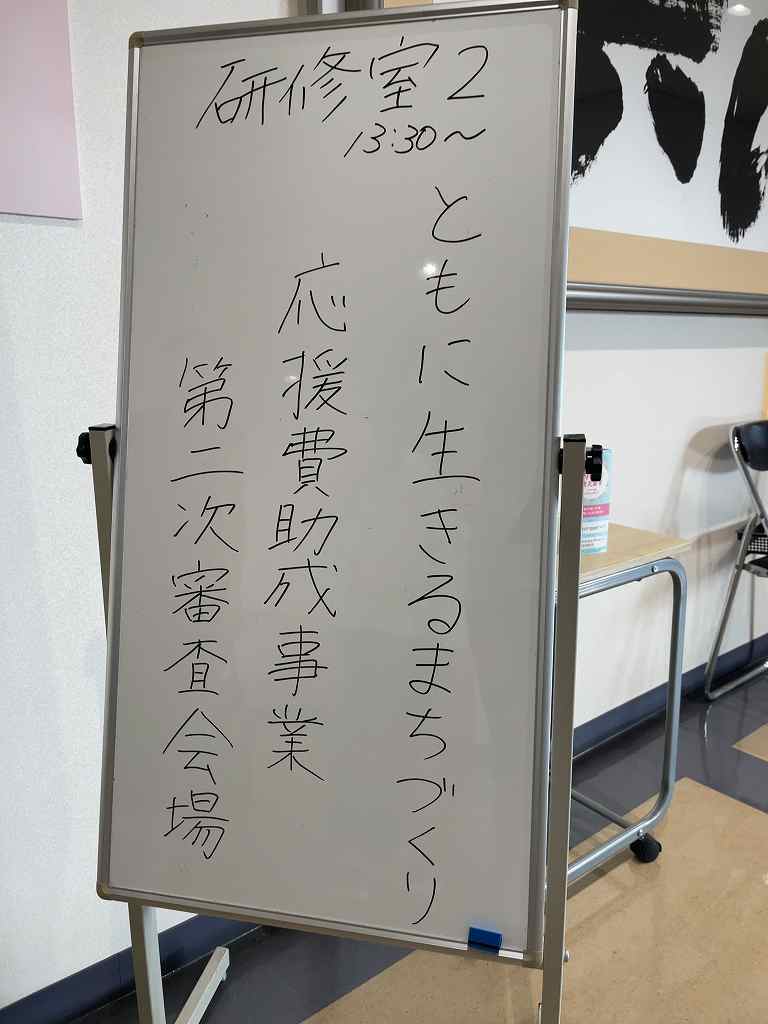 研修室2
13:30〜
ともに生きるまちづくり
応援費助成事業
第二次審査会場